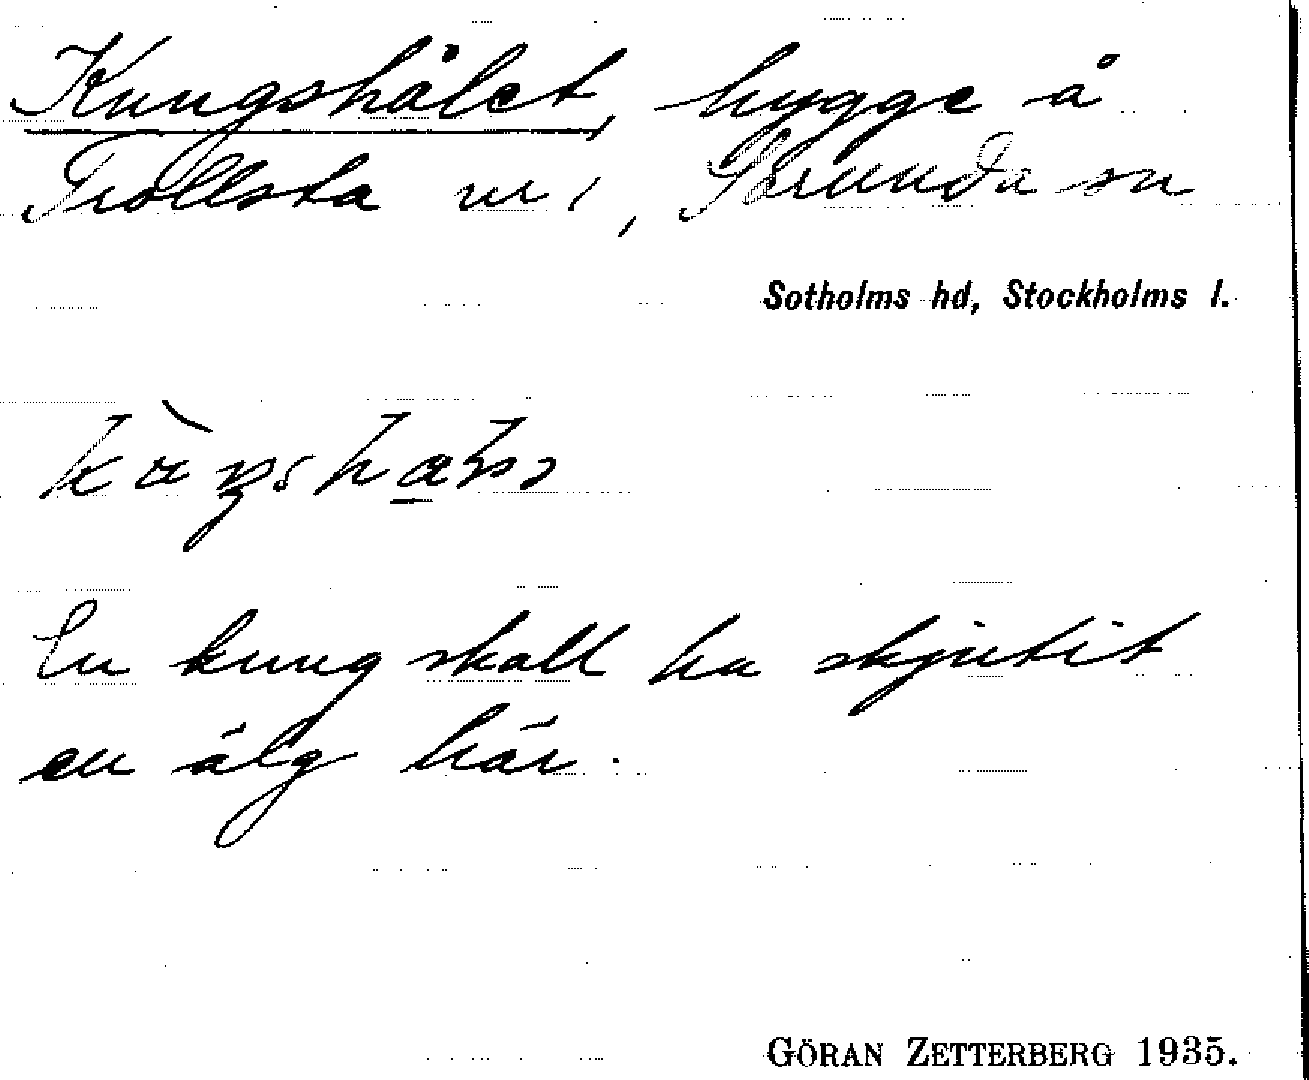 Kungshålet, hygge å
Trollsta nr 1, Sorunda sn
Sotholms hd, Stockholms l.
En kung skall ha skjutit
en älg här.
GÖRAN ZETTERBERG 1935.